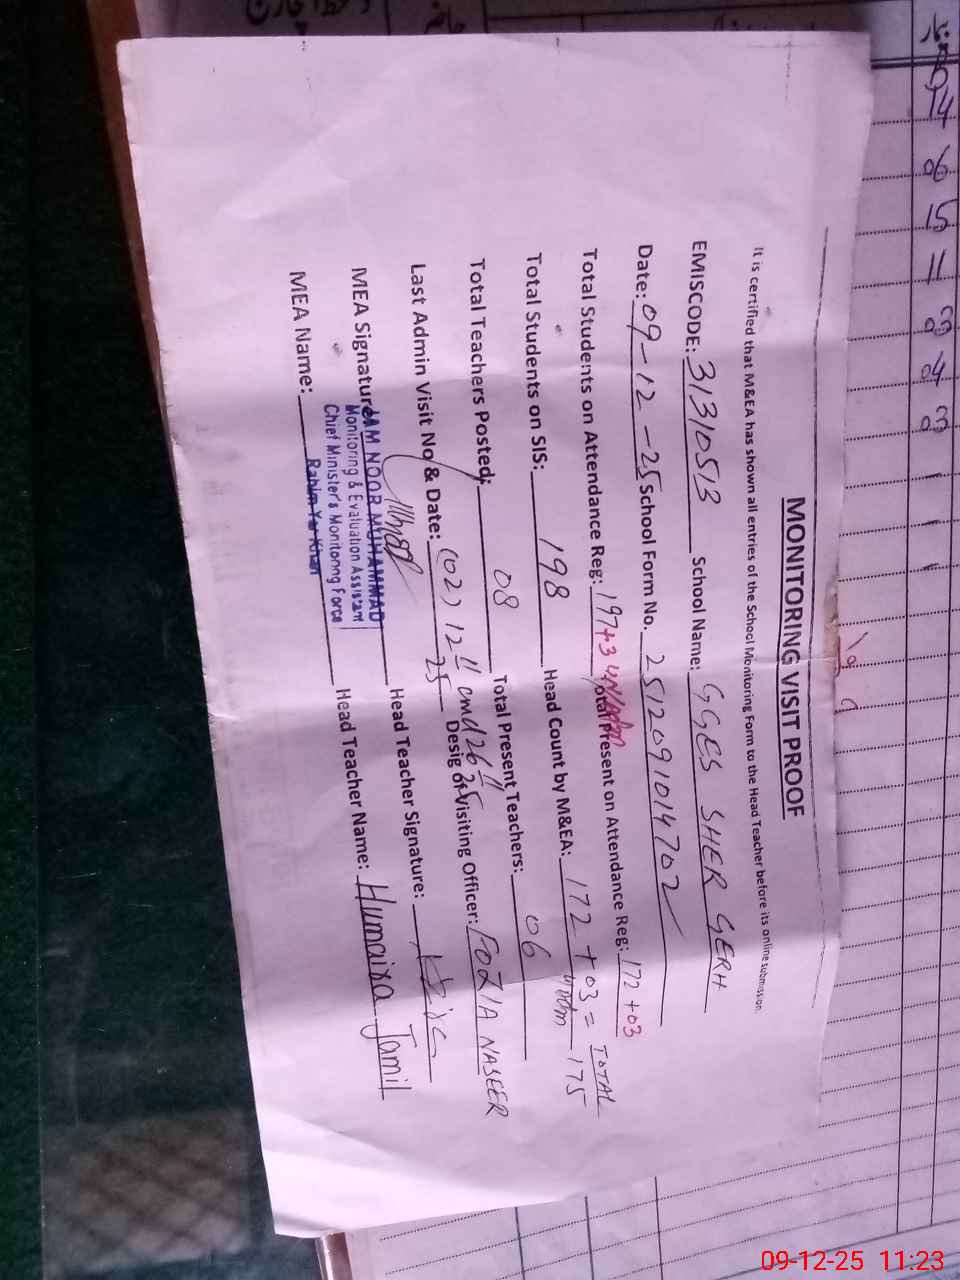 MONITORING VISIT PROOF
It is certified that M&EA has shown all entries of the School Monitoring Form to the Head Teacher before its online submission.
EMISCODE: 31310513 School Name: GGES SHER GERH
Date: 09-12-25 School Form No. 2512091014702
Total Students on Attendance Reg: 197+3 Total Present on Attendance Reg: 172 +03
Total Students on SIS: 198 Head Count by M&EA: 172 + 03 = TOTAL 175
Total Teachers Posted: 08 Total Present Teachers: 06
Last Admin Visit No & Date: (02) 12 11 25 and 26 11 25 Desig of Visiting Officer: FOZIA NASEER
MEA Signature: Head Teacher Signature:
JAM NOOR MUHAMMAD
Monitoring & Evaluation Assistant
Chief Minister's Monitoring Force
Rahim Yar Khan
MEA Name: Head Teacher Name: Humaira Jamil
04
06
15
11
03
04
03
09-12-25 11:23